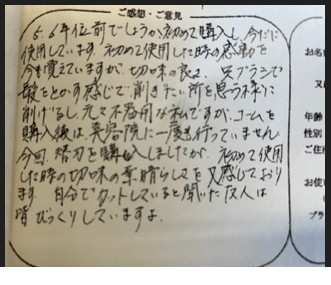 ご感想・ご意見
5、6年位前でしょうか初めて購入し、今だに
使用しています。初めて使用した時の感動を
今も覚えていますが、切味の良さ、ブラシで
髪をとかす感じで、削ぎたい所を思う様に
削げるし、元々不器用な私ですが、コームを
購入後は、美容院に一度も行っていません
今回、替刃を購入しましたが、初めて使用
した時の切味の素晴らしさを又感じており
ます。自分でカットしていると聞いた友人は
皆びっくりしていますよ。
お名
又
年齢
性別
ご住
お使
プラ